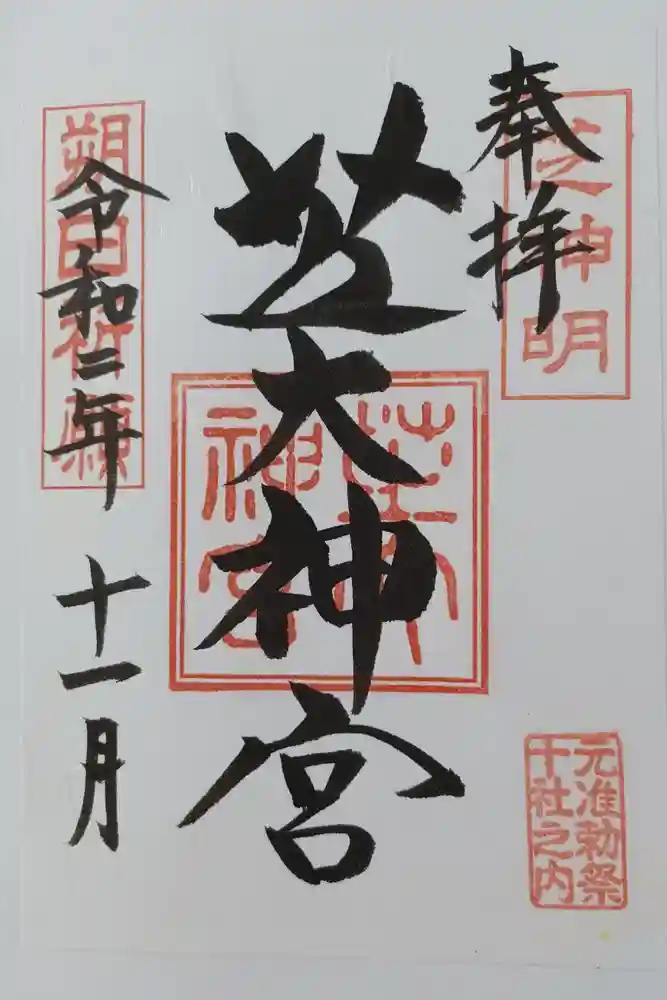 奉拝
芝神明
芝大神宮
芝大神宮
元准勅祭
十社之内
朔日祈願
令和二年
十一月